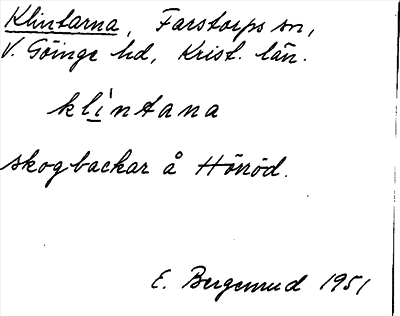 Klintarna, Farstorps sn,
V. Göinge hd, Krist. län.
kli̱ǹtana
skogbackar å Hörröd.
E. Bergemrud 1951